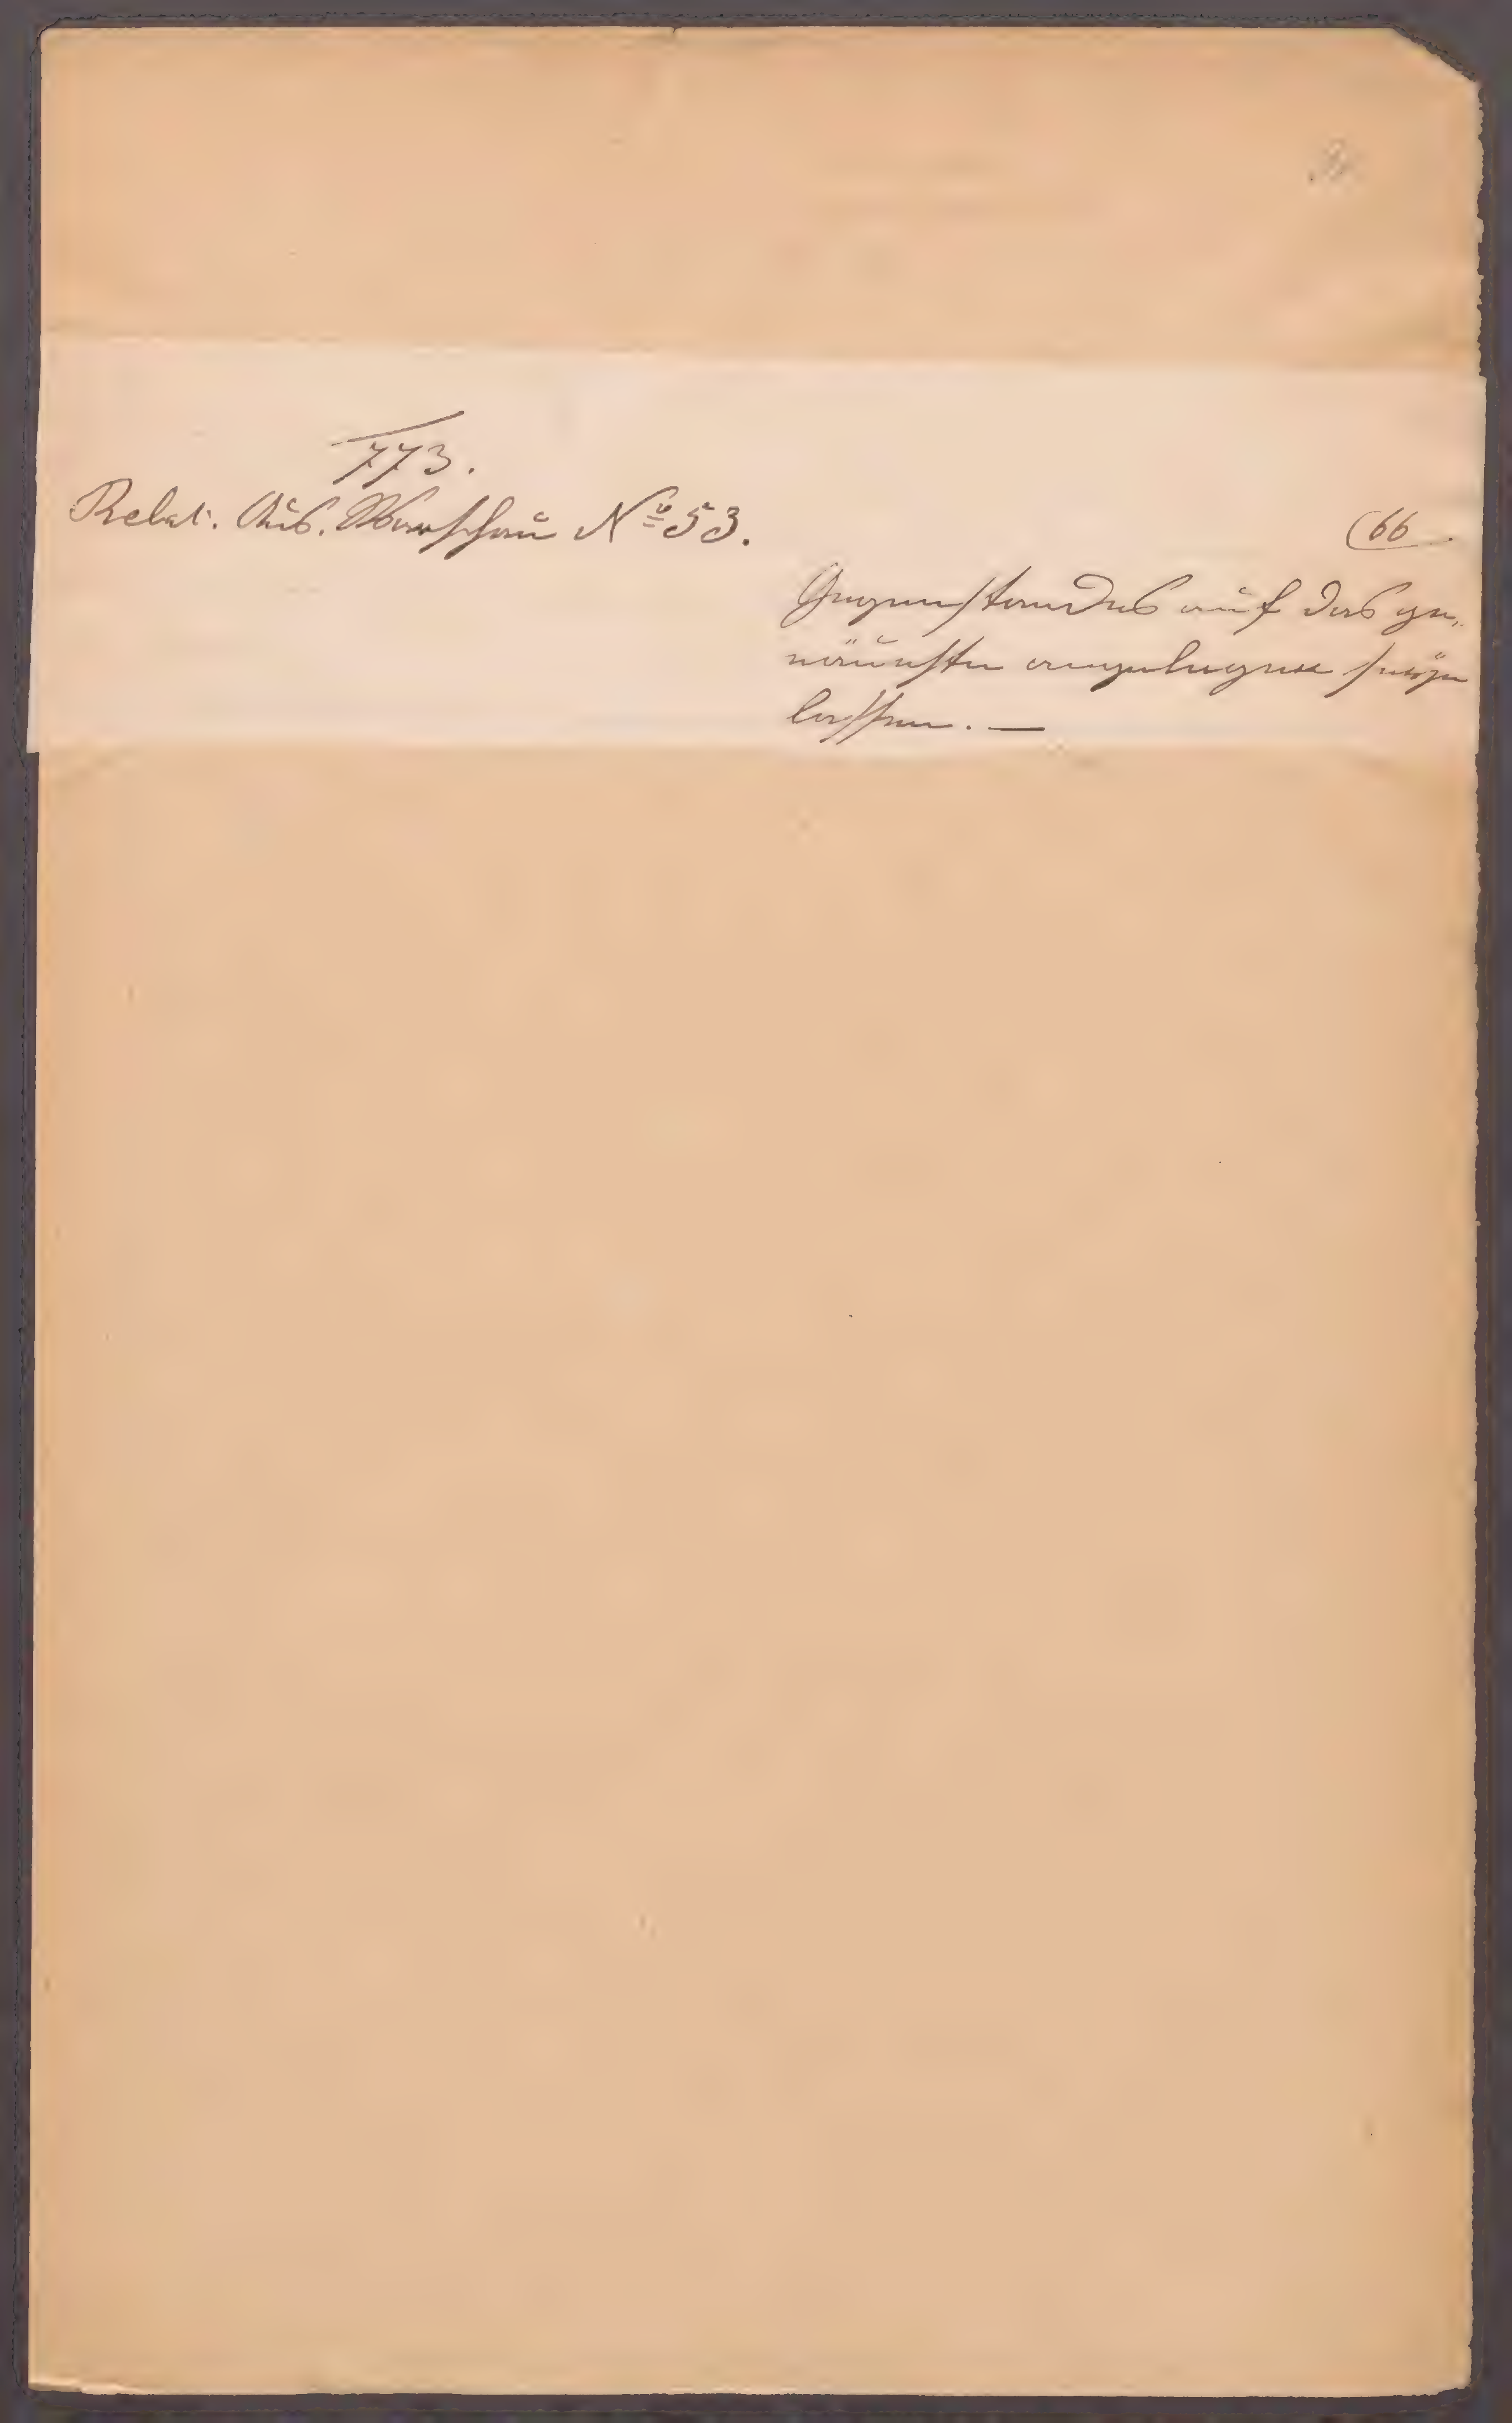 773.
Relat. Aus. Warschau No 53.
(66.
Gegenstandes auf das ge„
naueste angelegen seyn
lassen. —